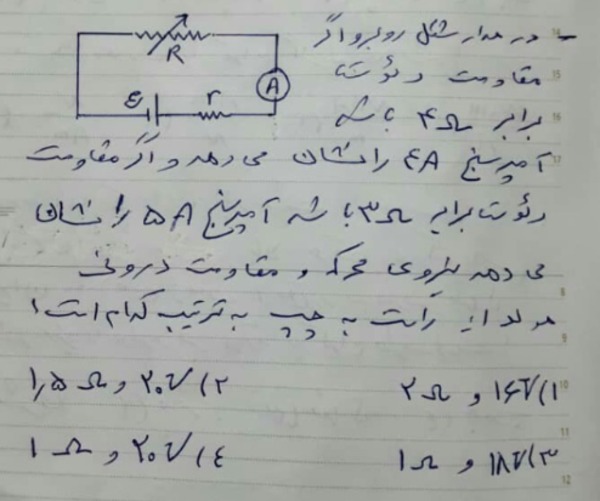 - در مدار شکل روبرو اگر
R
A
مقاومت رئوستا
ε r
برابر ۴Ω باشد
آمپرسنج ۴A را نشان می دهد و اگر مقاومت
رئوستا برابر ۳Ω باشد آمپرسنج ۵A را نشان
می دهد نیروی محرکه و مقاومت درونی
مولد از راست به چپ به ترتیب کدام است؟
۱) ۱۶V و ۲Ω ۲) ۲۰V و ۱٫۵Ω
۳) ۱۸V و ۱Ω ۴) ۲۰V و ۱Ω